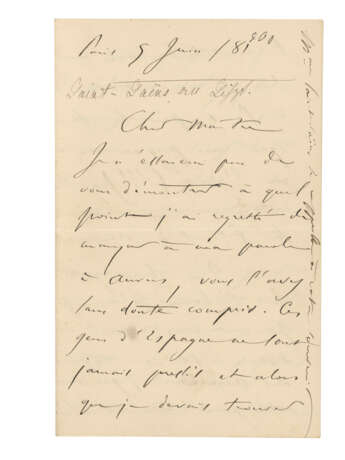 Paris 5 Juin
Saint-Saëns
Cher Maître
Je n'essaierai pas de
vous démontrer à quel
point j'ai regretté de
manquer à ma parole
à Anvers, vous l'avez
sans doute compris. Ces
gens d'Espagne ne sont
jamais prêts et alors
que je devais trouver